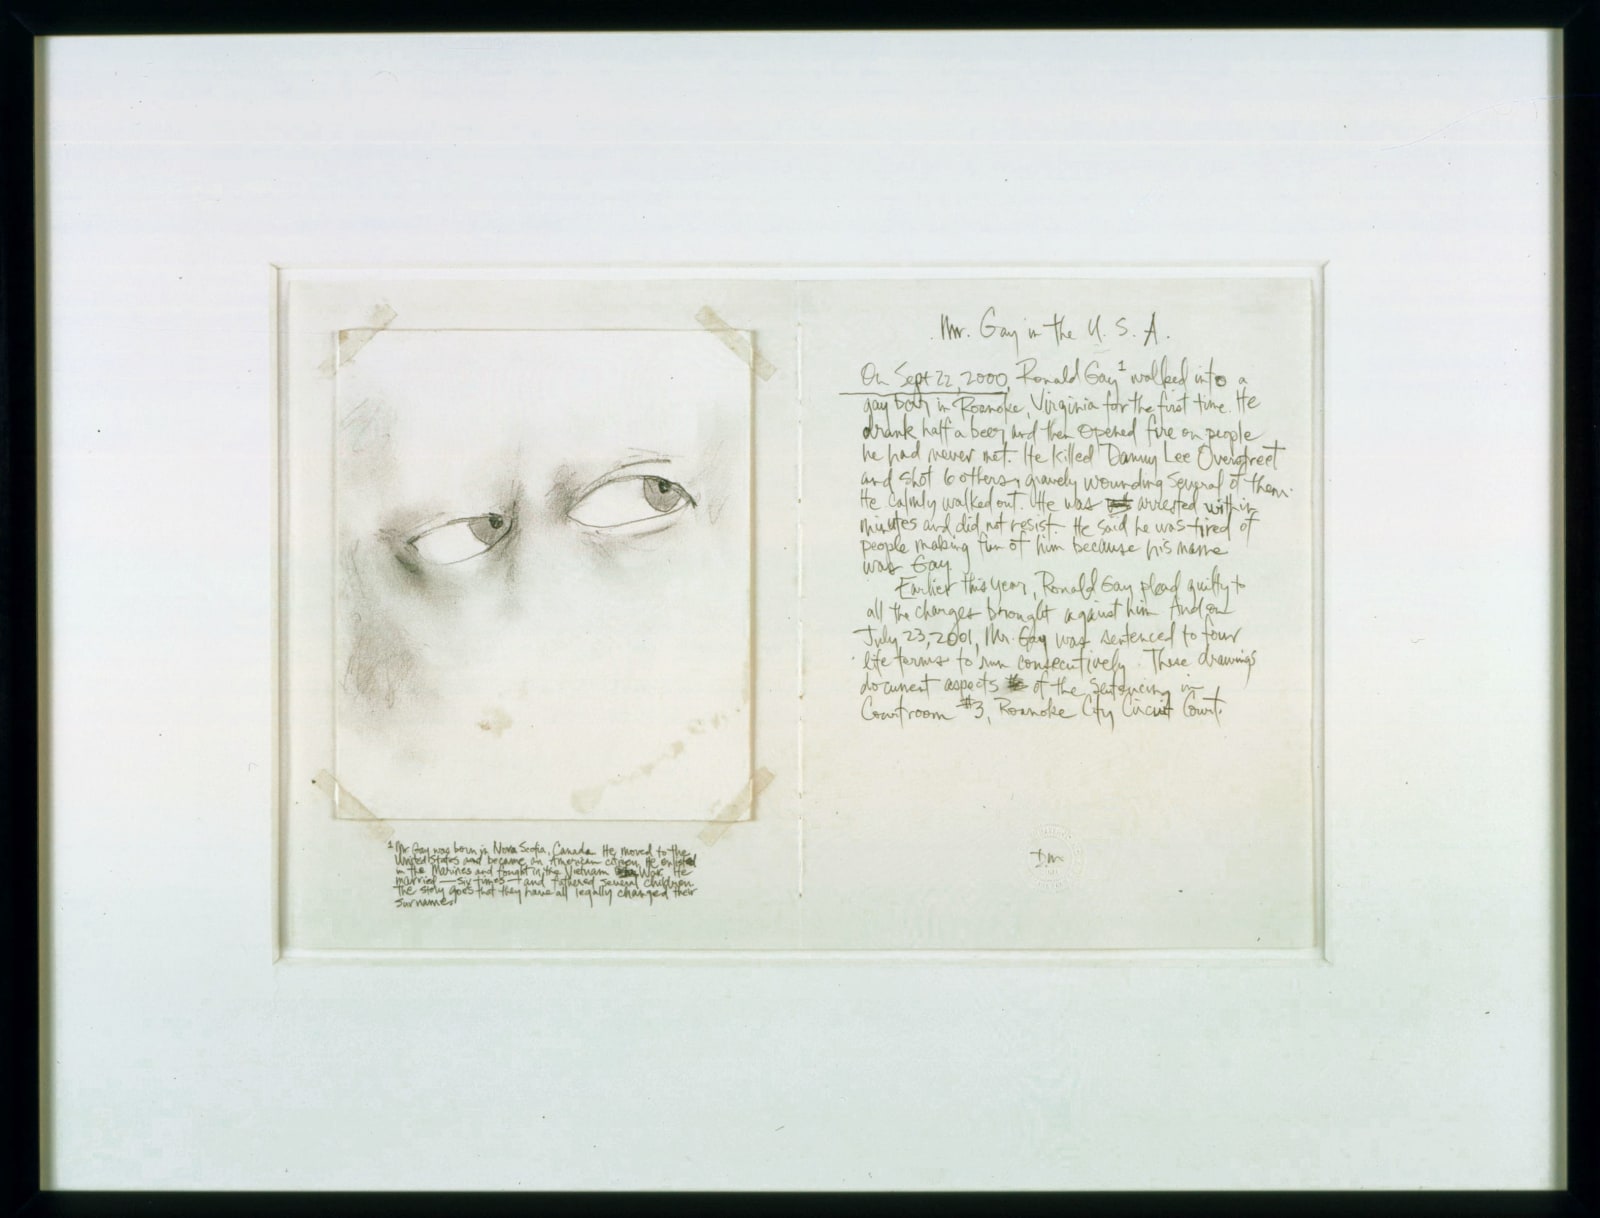 Mr. Gay in the U. S. A.
On Sept 22, 2000, Ronald Gay¹ walked into a
gay bar in Roanoke, Virginia for the first time. He
drank half a beer and then opened fire on people
he had never met. He killed Danny Lee Overstreet
and shot 6 others, gravely wounding several of them.
He calmly walked out. He was arrested within
minutes and did not resist. He said he was tired of
people making fun of him because his name
was Gay.
Earlier this year, Ronald Gay plead guilty to
all the charges brought against him. And on
July 23, 2001, Mr. Gay was sentenced to four
life terms to run consecutively. These drawings
document aspects of the sentencing in
Courtroom #3, Roanoke City Circuit Court.
¹ Mr. Gay was born in Nova Scotia, Canada. He moved to the
United States and became an American citizen. He enlisted
in the Marines and fought in the Vietnam War. He
married — six times — and fathered several children.
The story goes that they have all legally changed their
surnames.
DM